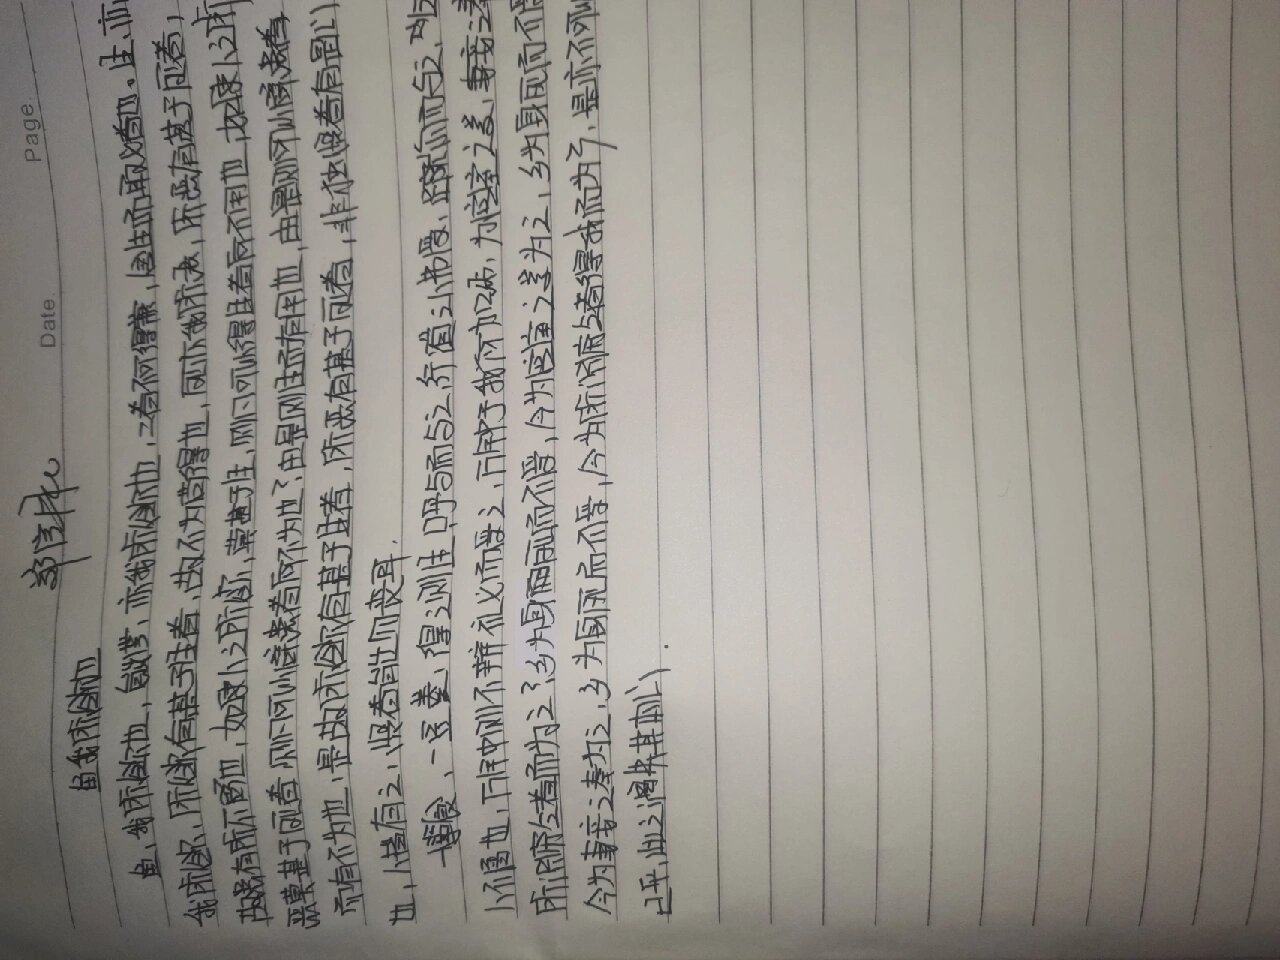 Date. Page.
鱼我所欲也
鱼,我所欲也,熊掌,亦我所欲也,二者不可得兼,舍生而取义者也。生,亦
我所欲,所欲有甚于生者,故不为苟得也,死亦我所恶,所恶有甚于死者,
故患有所不辟也,如使人之所欲,莫甚于生,则凡可以得生者何不用也,如使人之所
恶莫甚于死者 则凡可以辟患者何不为也?由是则生而有不用也,由是则可以辟患者
而有不为也,是故所欲有甚于生者,所恶有甚于死者,非独贤者有是心
也,人皆有之,贤者能勿丧耳.
一箪食,一豆羹,得之则生 呼尔而与之,行道之人弗受,蹴尔而与之,
人不屑也,万钟则不辩礼义而受之,万钟于我何加焉,为宫室之美,妻妾之奉
所识穷乏者而为之?,乡为身死而不受,今为宫室之美为之,乡为身死而不受
今为妻妾之奉为之,乡为身死而不受,今为所识穷乏者得我而为之,是亦不可以
已乎,此之谓失其本心.